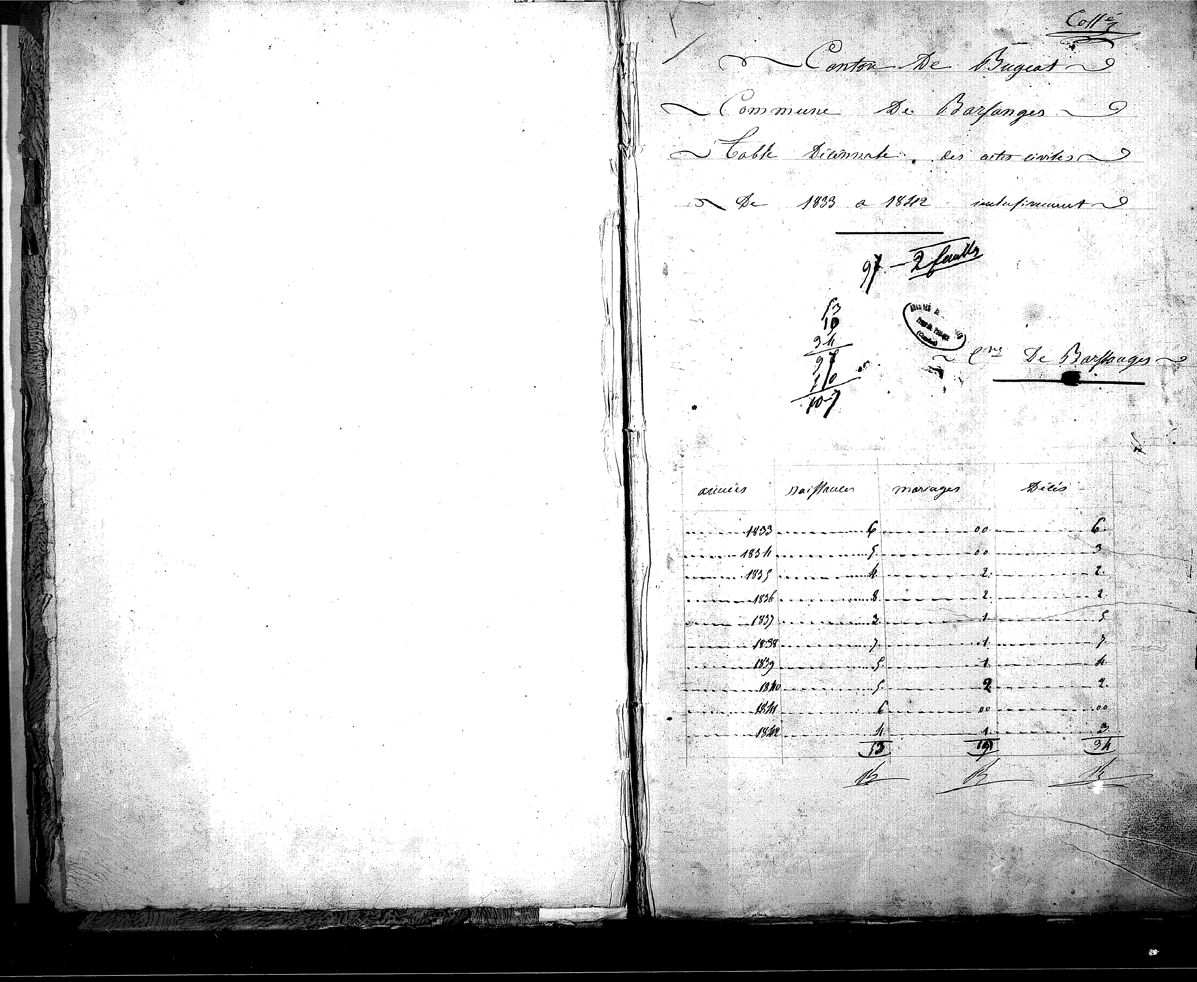 Collé
Canton De Bugeat
Commune De Barsanges
Table Décennale des actes civiles
De 1833 a 1842 inclusivement
97 — 2 feuilles
53
10
34
97
10
107
Cne De Barsanges
années naissances mariages Décés
1833 6 00 6
1834 5 00 3
1835 4 2 2
1836 8 2 2
1837 3 1 5
1838 7 1 7
1839 5 1 4
1840 5 2 2
1841 6 00 00
1842 4 1 3
53 10 34